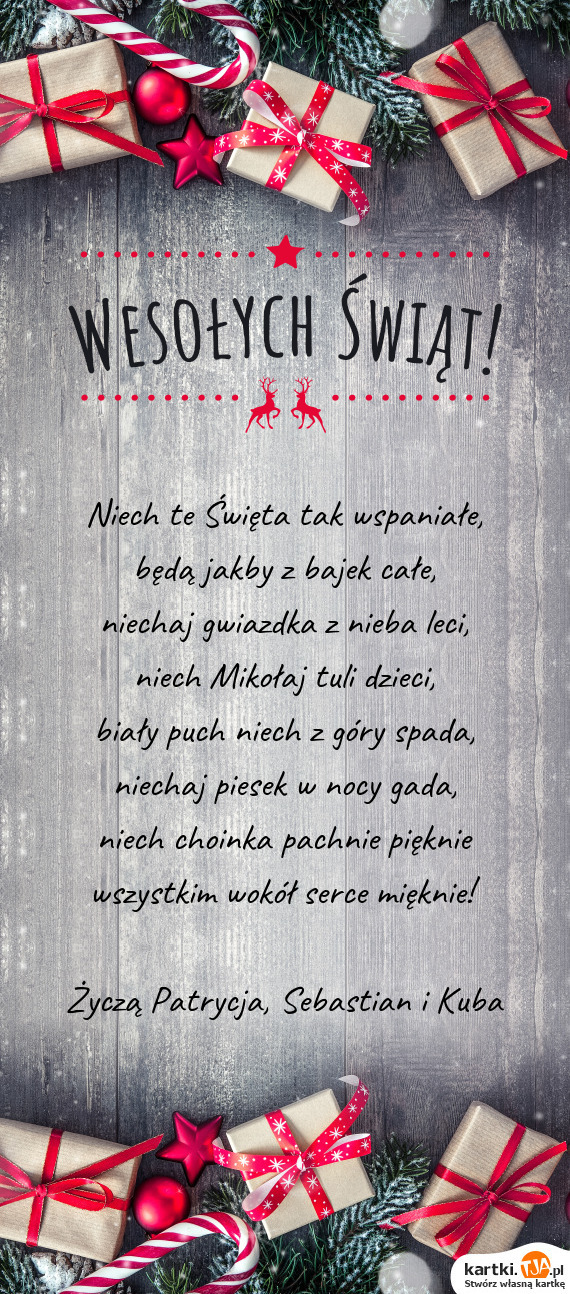 Wesołych Świąt!
Niech te Święta tak wspaniałe,
będą jakby z bajek całe,
niechaj gwiazdka z nieba leci,
niech Mikołaj tuli dzieci,
biały puch niech z góry spada,
niechaj piesek w nocy gada,
niech choinka pachnie pięknie
wszystkim wokół serce mięknie!
Życzą Patrycja, Sebastian i Kuba
kartki.TJA.pl
Stwórz własną kartkę